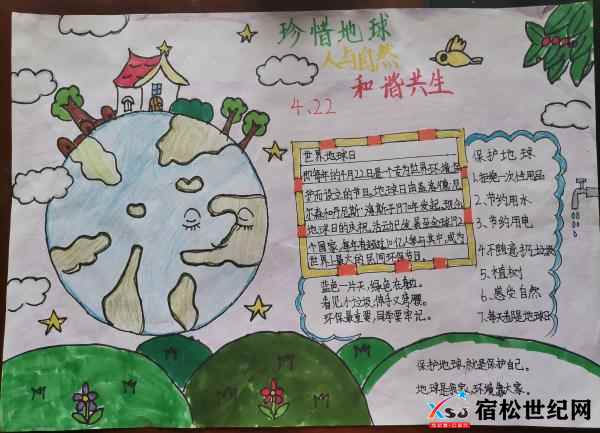 珍惜地球
人与自然
和谐共生
4.22
世界地球日
即每年的4月22日是一个专为世界环境保
护而设立的节日。地球日由盖洛德·尼
尔森和丹尼斯·海斯于1970年发起,现今
地球日的庆祝活动已发展至全球192
个国家,每年有超过10亿人参与其中,成为
世界上最大的民间环保节日。
蓝色一片天,绿色在身边。
看见小垃圾,伸手又弯腰。
环保最重要,同学要牢记。
保护地球
1.拒绝一次性用品
2.节约用水
3.节约用电
4.不随意扔垃圾
5.植树
6.感受自然
7.每天都是地球日
保护地球,就是保护自己。
地球是我家,环境靠大家。
宿松世纪网